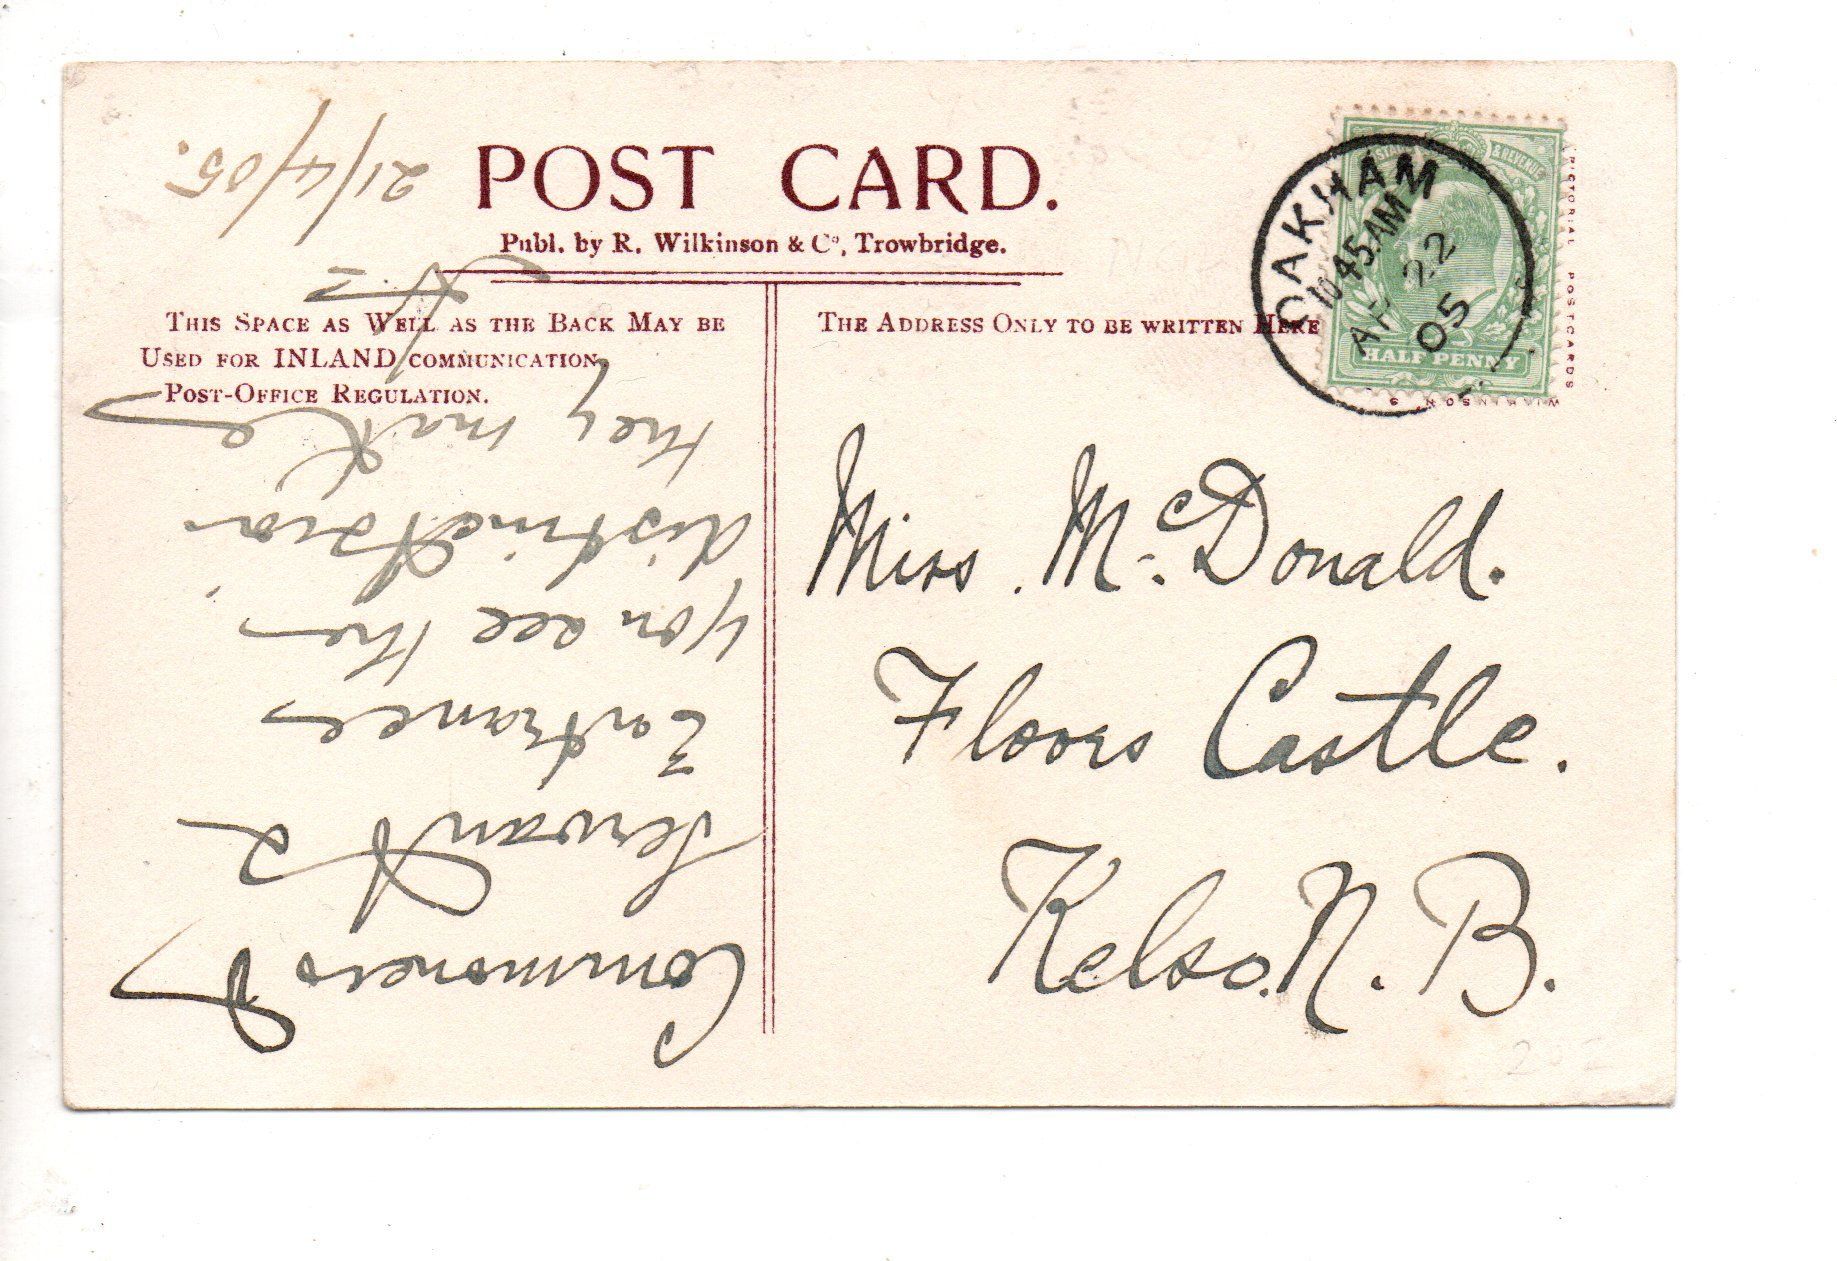 POST CARD.
Publ. by R. Wilkinson & Co, Trowbridge.
THIS SPACE AS WELL AS THE BACK MAY BE
USED FOR INLAND COMMUNICATION.
POST-OFFICE REGULATION.
THE ADDRESS ONLY TO BE WRITTEN HERE
& REVENUE
HALF PENNY
OAKHAM
10.45AM
AP 22
05
WILKINSON'S
PICTORIAL POSTCARDS
Miss McDonald.
Floors Castle.
Kelso. N. B.
Commoners &
Servants
Entrances
You see the
distinction
they make
21/4/05.